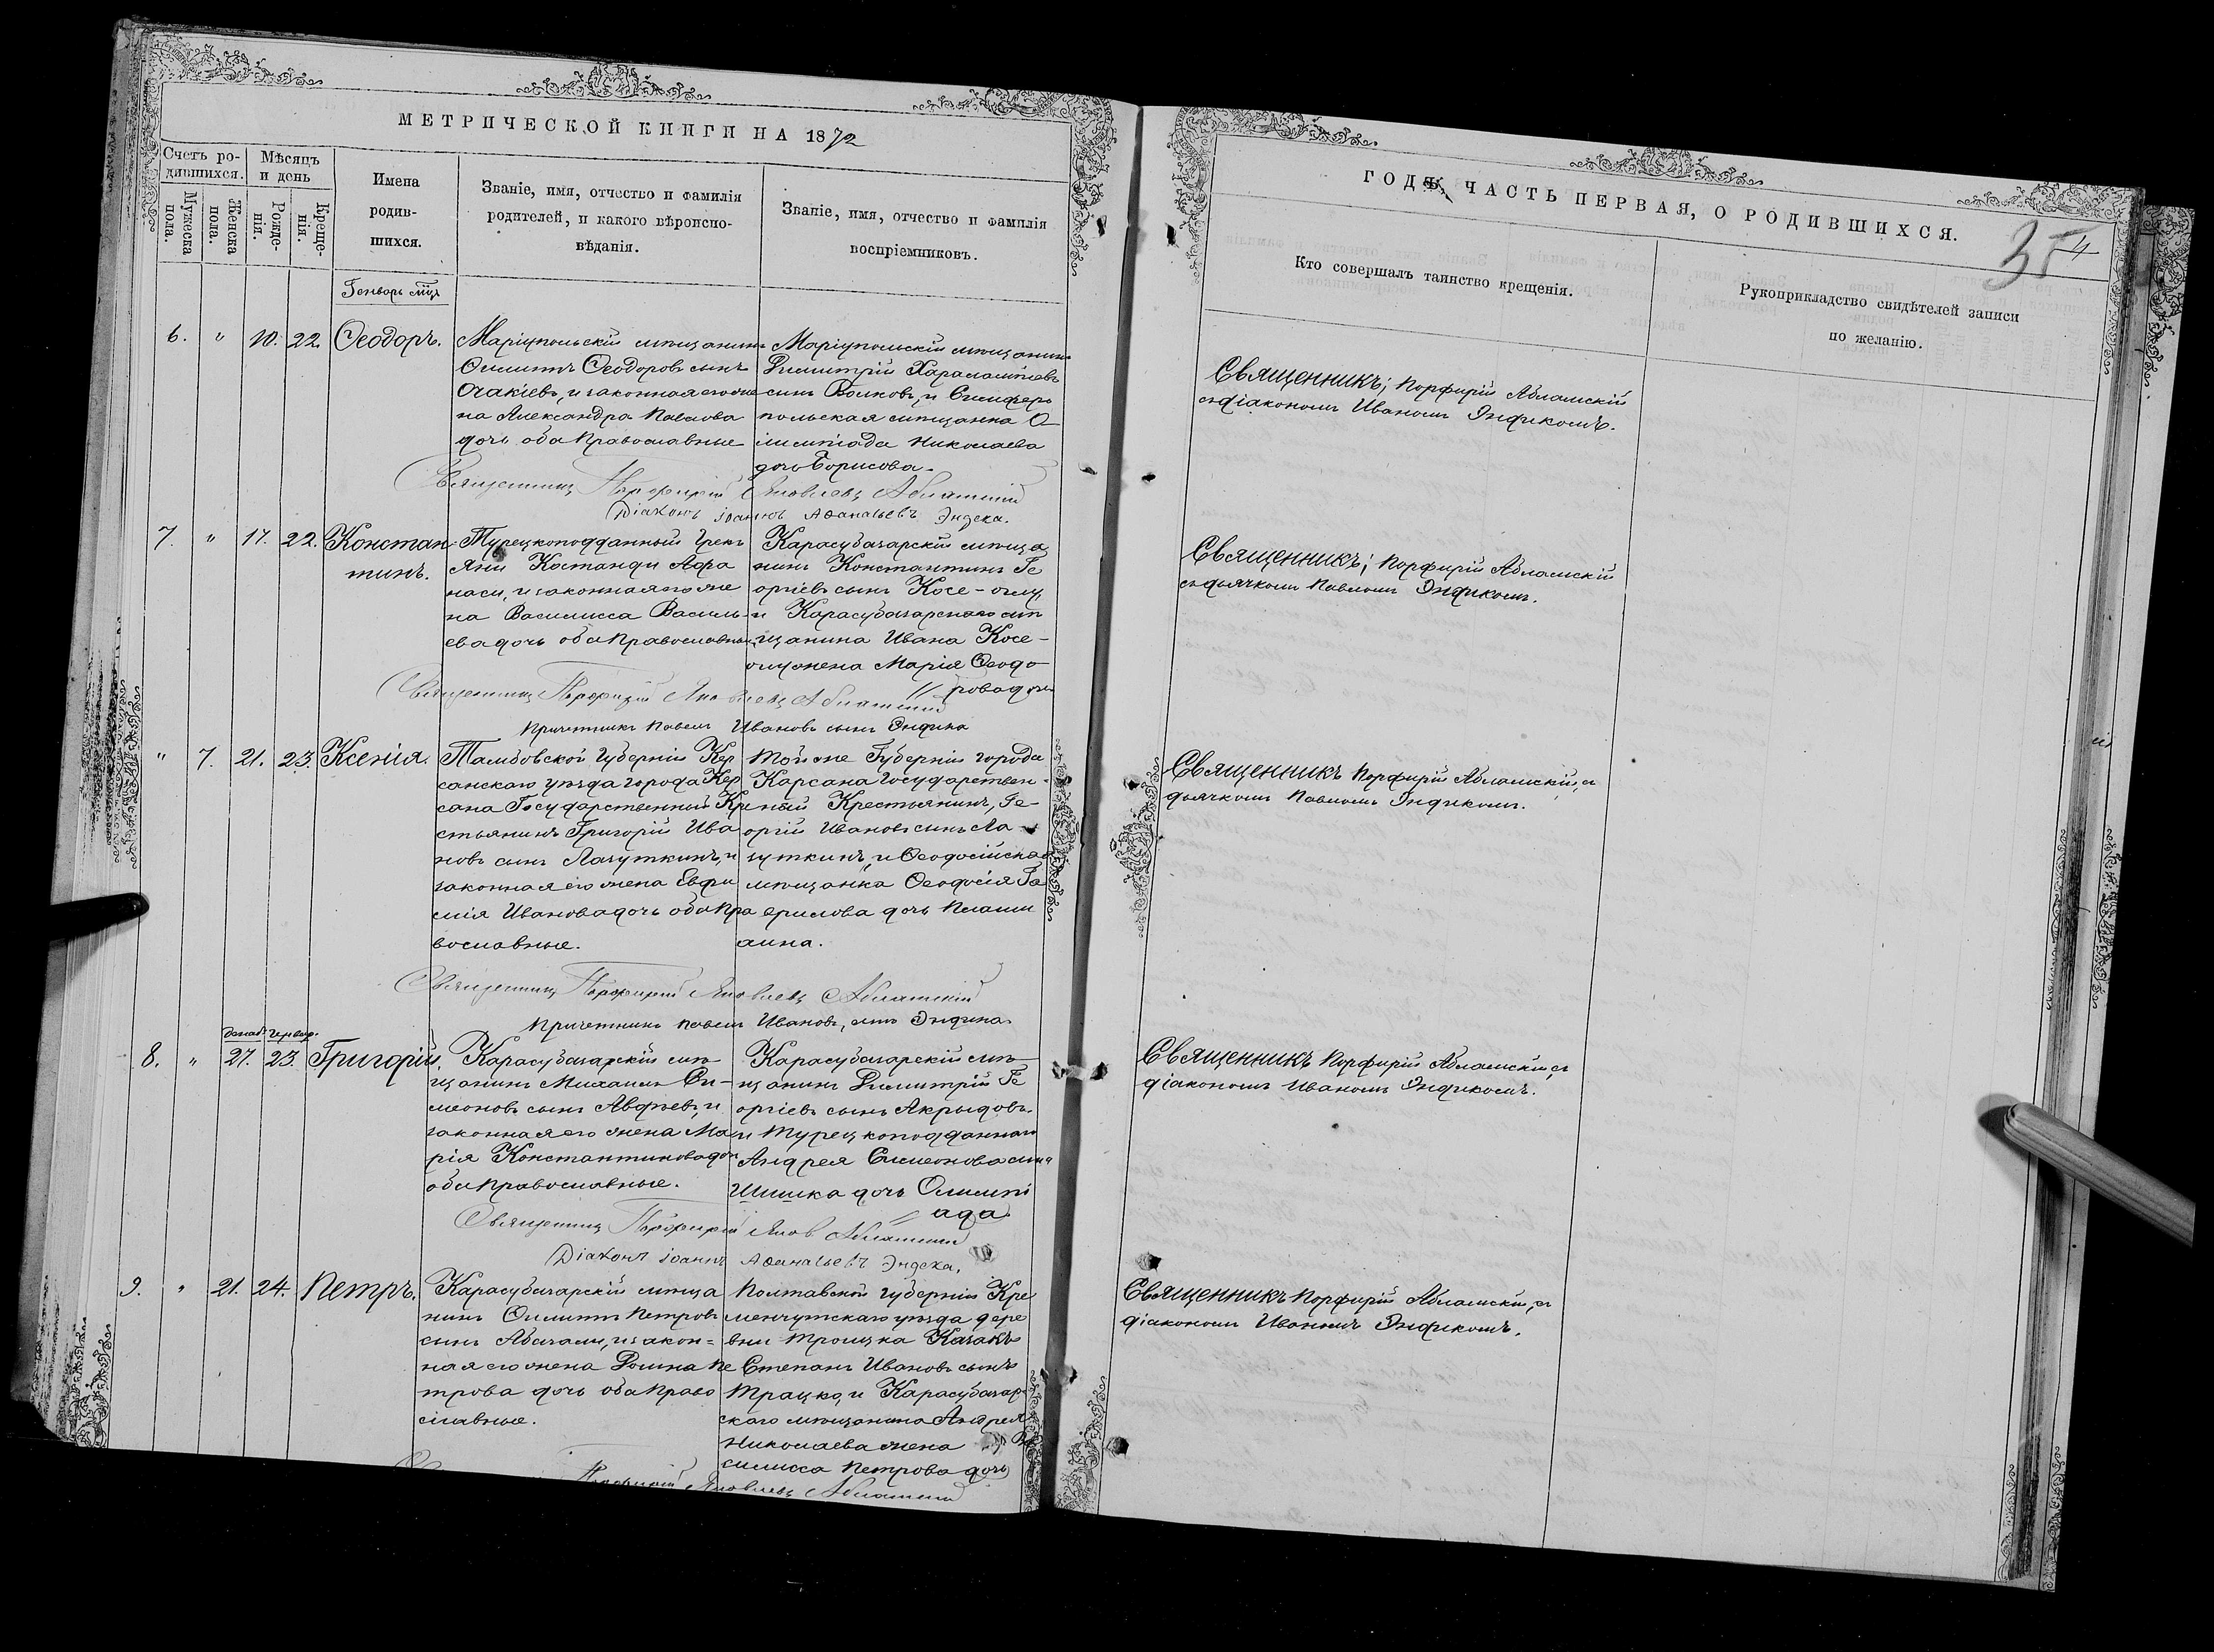 МЕТРИЧЕСКОЙ КНИГИ НА 1872
Счетъ ро-
дившихся.
Мѣсяцъ
и день
Мужеска
пола.
Женска
пола.
Рожде-
нія.
Креще-
нія.
Имена
родив-
шихся.
Званіе, имя, отчество и фамилія
родителей, и какого вѣроиспо-
вѣданія.
Званіе, имя, отчество и фамилія
воспріемниковъ.
Генварь мцъ
6. " 10. 22. Ѳеодоръ.
Маріупольскій мѣщанинъ
Ѳеодоровъ сынъ
и законная его же
на Александра Павлова
дочь оба Православные
Маріупольскій мѣщанинъ
Димитрій Харалампіевъ
сынъ Волковъ, и Симферо
польская мѣщанка О
лимпіада Николаева
дочь Борисова.
Священникъ Порфирій Яковлевъ Абламскій
Діаконъ Іоаннъ Аѳанасьевъ Эндека.
7. " 17. 22. Констан-
тинъ.
Турецкоподданный Грекъ
Яни Костанди Аѳа
наси, и законная его же
на Василисса Василь
ева дочь оба Православные
Карасубазарскій мѣща
нинъ Константинъ Ге
оргіевъ сынъ Косе-оглу,
и Карасубазарскаго мѣ
щанина Ивана Косе-
оглу жена Марія Ѳеодо
рова дочь
Священникъ Порфирій Яковлевъ Абламскій
Причетникъ Павелъ Ивановъ сынъ Эндика
" 7. 21. 23. Ксенія.
Тамбовской Губерніи Кер
санскаго уѣзда города Кер
сана Государственный Кре
стьянинъ Григорій Ива
новъ сынъ Лазуткинъ, и
законная его жена Евфи
мія Иванова дочь оба Пра
вославные.
Той же Губерніи города
Карсана Государствен-
ный Крестьянинъ, Ге-
оргій Ивановъ сынъ Ла-
зуткинъ, и Ѳеодосійская
мѣщанка Ѳеодосія Га
врилова дочь
Священникъ Порфирій Яковлевъ Абламскій
Причетникъ Павелъ Ивановъ, сынъ Эндика
декаб. генвар.
8. " 27. 23. Григорій.
Карасубазарскій мѣ-
щанинъ Михаилъ Си-
меоновъ сынъ Авдѣевъ, и
законная его жена Ма
рія Константинова дочь
оба Православные.
Карасубазарскій мѣ-
щанинъ Димитрій Ге
оргіевъ сынъ Акрыдовъ
и Турецкоподданнаго
Андрея Симеонова сына
Шишка дочь Олимпі
ада
Священникъ Порфирій Яков. Абламскій
Діаконъ Іоаннъ Аѳанасьевъ Эндека.
9. " 21. 24. Петръ.
Карасубазарскій мѣща
нинъ Петровъ
сынъ и закон=
ная его жена Домна Пе
трова дочь оба Право
славные.
Полтавской Губерніи Кре
менчугскаго уѣзда дере
вни Троицка Казакъ
Степанъ Ивановъ сынъ
Трацко, и Карасубазар
скаго мѣщанина Андрея
Николаева жена Ва
силисса Петрова дочь
Порфирій Яковлевъ Абламскій
ГОДЪ, ЧАСТЬ ПЕРВАЯ, О РОДИВШИХСЯ.
35
4
Кто совершалъ таинство крещенія.
Рукоприкладство свидѣтелей записи
по желанію.
Священникъ; Порфирій Абламскій
съ діакономъ Иваномъ Эндикомъ.
Священникъ; Порфирій Абламскій
съ дьячкомъ Павломъ Эндикомъ.
Священникъ Порфирій Абламскій, съ
дьячкомъ Павломъ Эндикомъ.
Священникъ Порфирій Абламскій съ
діакономъ Иваномъ Эндикомъ.
Священникъ Порфирій Абламскій, съ
діакономъ Иваномъ Эндикомъ.